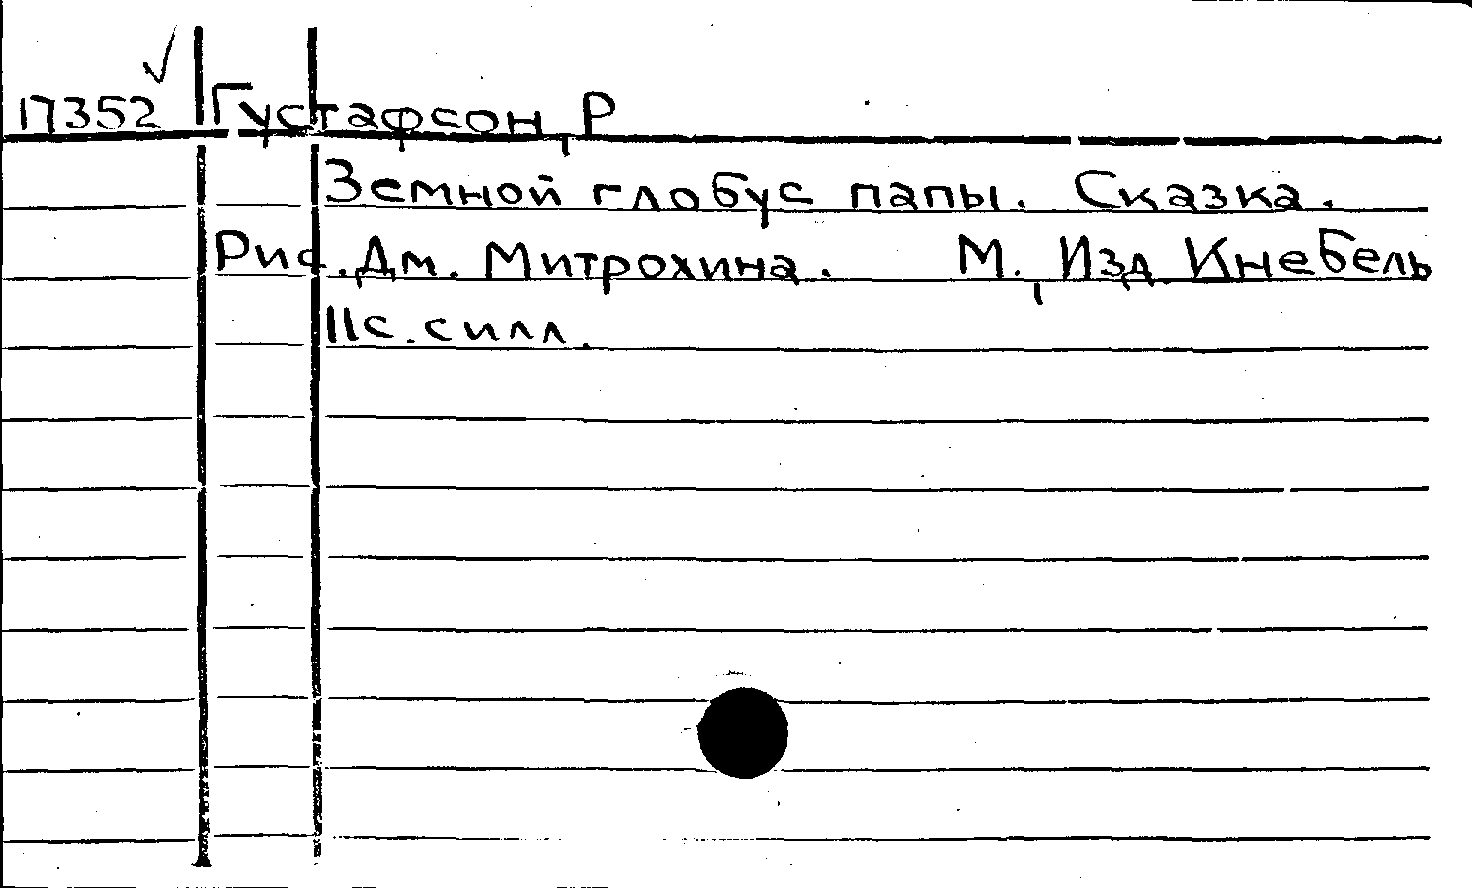 17352 Густафсон, Р
Земной глобус папы. Сказка.
Рис. Дм. Митрохина. М., Изд. Кнебель
11с. с илл.